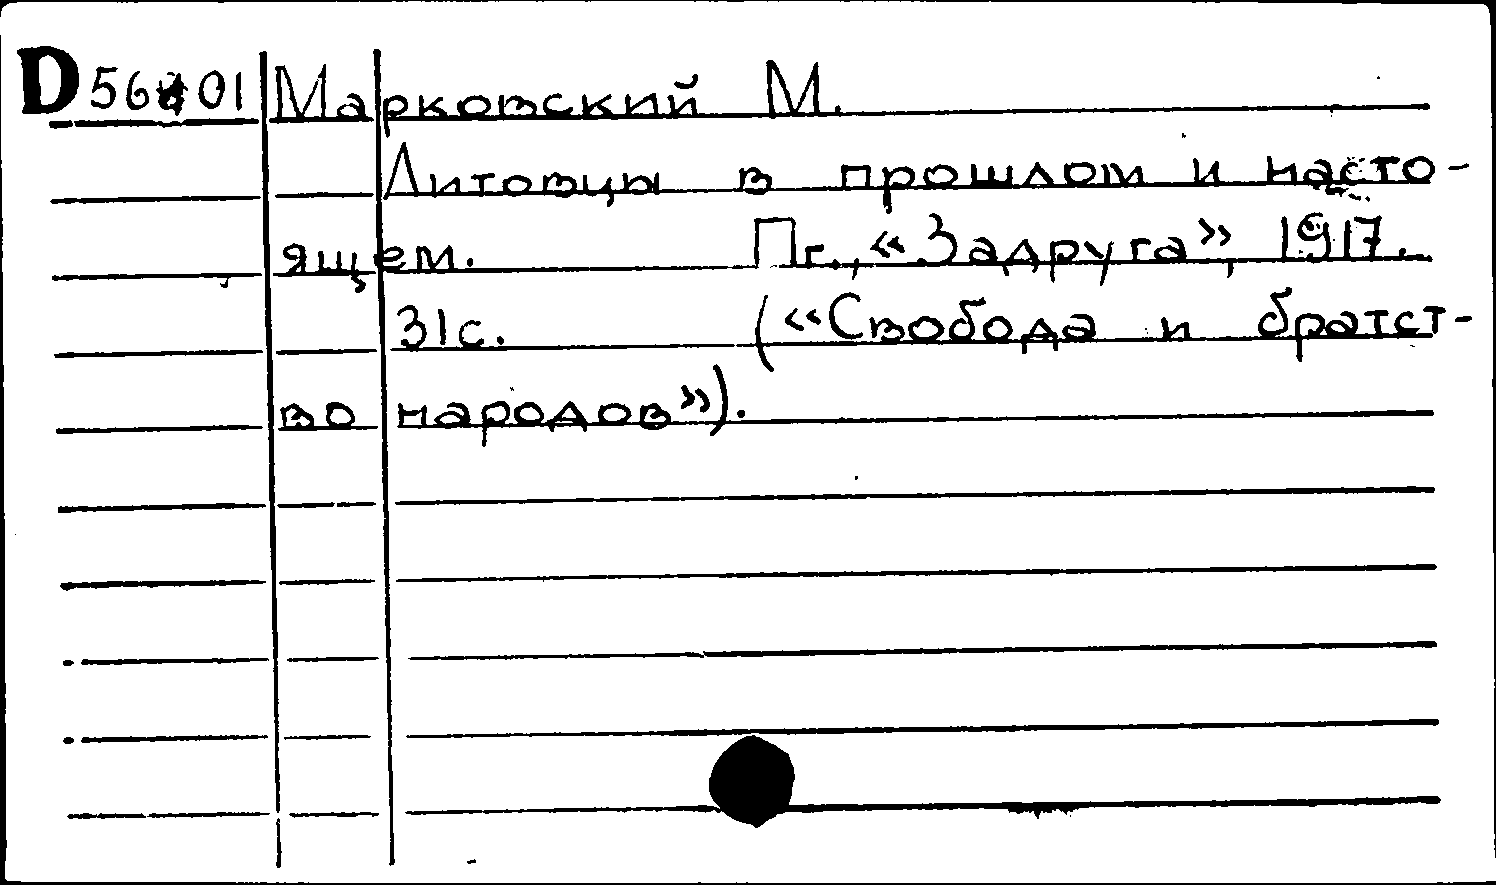 Марковский М.
Литовцы в прошлом и насто-
ящем. Пг., «Задруга», 1917.
31с. («Свобода и братст-
во народов»).